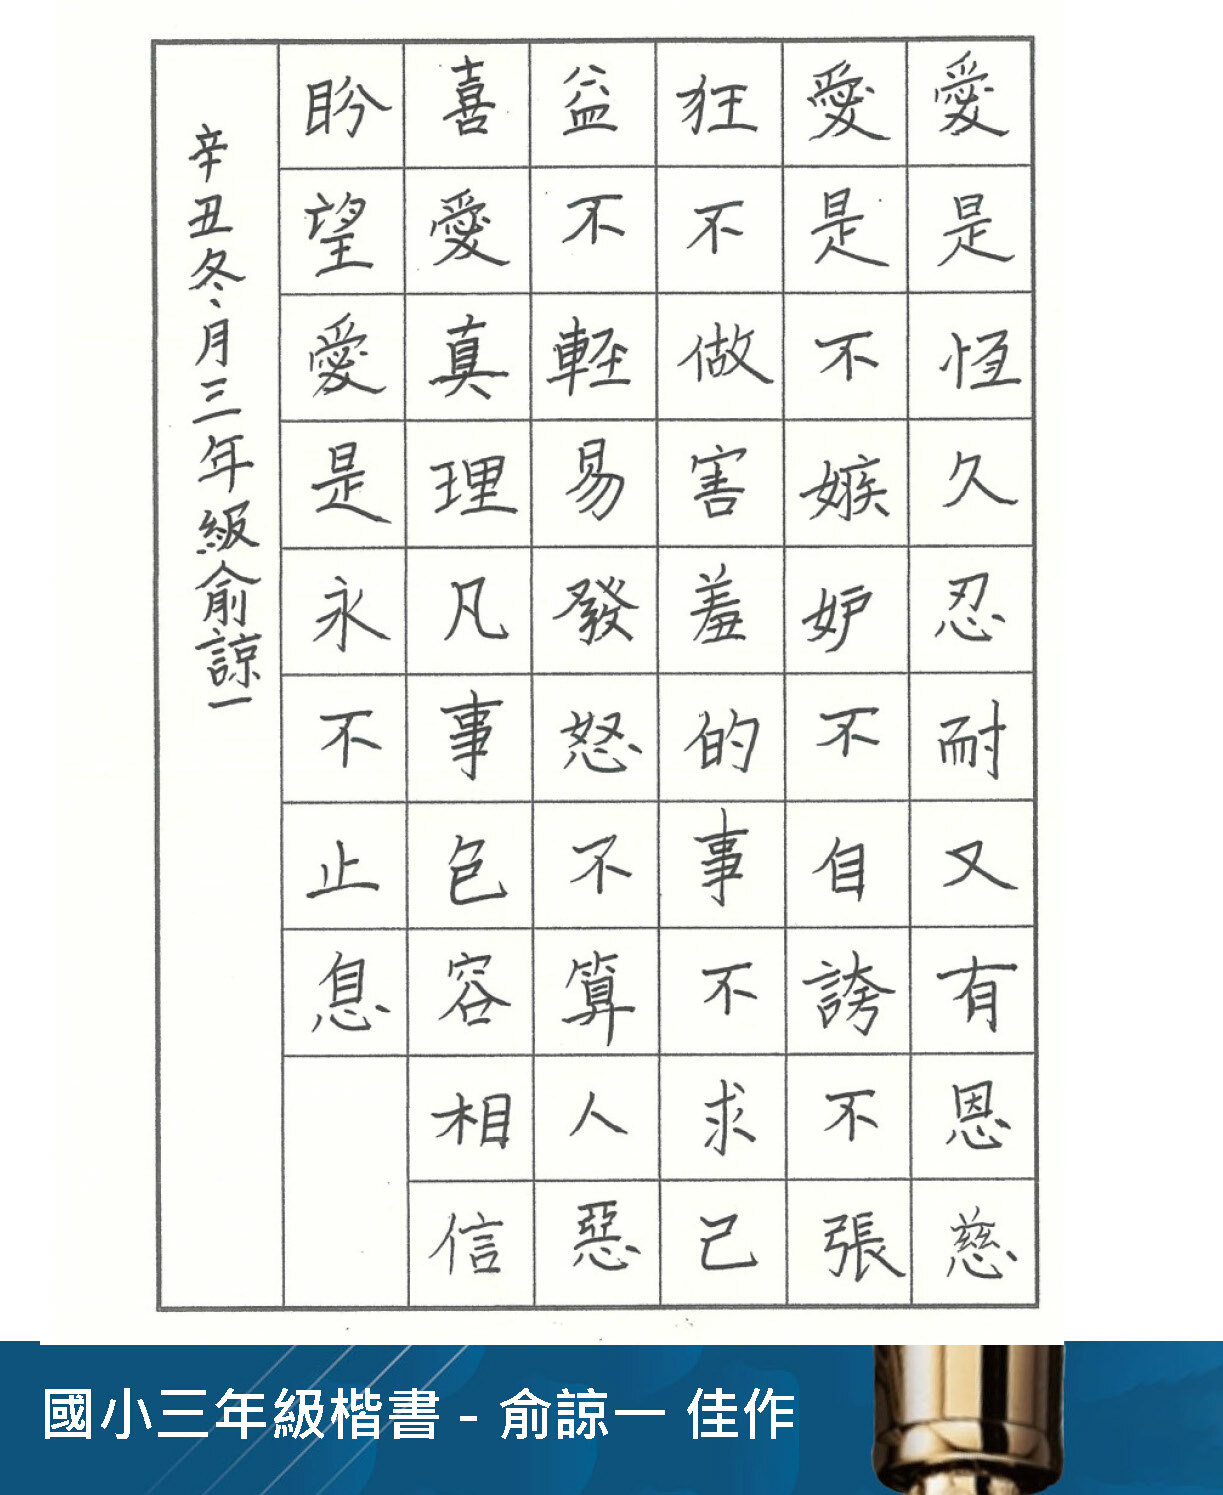 愛是恆久忍耐又有恩慈
愛是不嫉妒不自誇不張
狂不做害羞的事不求己
益不輕易發怒不算人惡
喜愛真理凡事包容相信
盼望愛是永不止息
辛丑冬月三年級俞諒一
國小三年級楷書 - 俞諒一 佳作